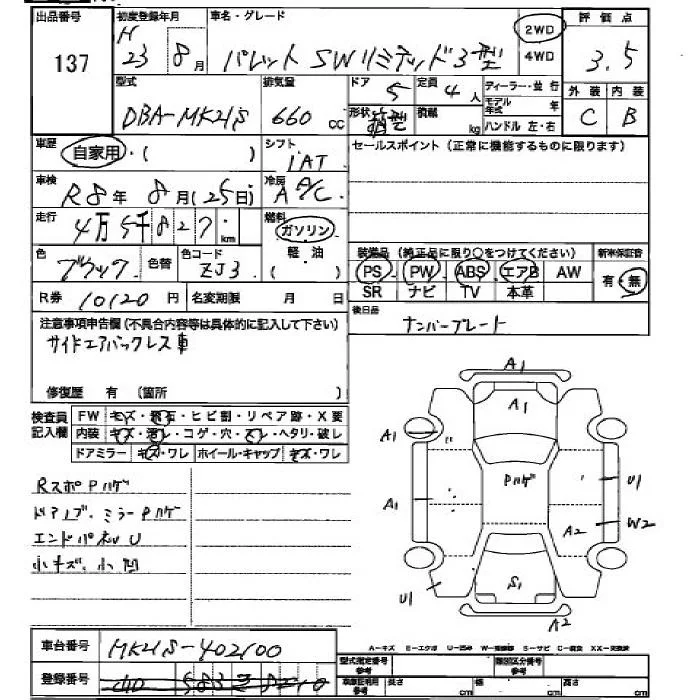 出品番号 137
初度登録年月 H 23年 8月
車名・グレード パレット SWリミテッド3型
2WD 4WD
評価点 3.5
型式 DBA-MK21S
排気量 660 cc
ドア 5
定員 4人
形状 箱型
積載 kg
ディーラー・並行
モデル年式 年
ハンドル 左・右
外装 C
内装 B
車歴 自家用・( )
シフト IAT
セールスポイント (正常に機能するものに限ります)
車検 R8年 8月(25日)
冷房 A A/C
走行 4万5千827 km
燃料 ガソリン 軽油 ( )
色 ブラック 色替
色コード ZJ3
装備品 (純正品に限り○をつけてください)
新車保証書 有・無
PS PW ABS エアB AW
SR ナビ TV 本革
R券 10120円 名変期限 月 日
後日品 ナンバープレート
注意事項申告欄(不具合内容等は具体的に記入して下さい)
サイドエアバックレス車
修復歴 有 (箇所 )
検査員記入欄
FW キズ・飛石・ヒビ割・リペア跡・X要
内装 キズ・汚レ・コゲ・穴・スレ・ヘタリ・破レ
ドアミラー キズ・ワレ ホイール・キャップ キズ・ワレ
Rスポ Pハゲ
ドアノブ、ミラー Pハゲ
エンドパネルU
小キズ、小凹
A1
A1
A1
A1
Pハゲ
U1
A2
W2
U1
S1
A2
車台番号 MK21S-402100
登録番号
A-キズ E-エクボ U-凹み W-補修跡 S-サビ C-腐食 XX-交換済
型式指定番号 参考
類別区分番号 参考
車庫証明用 参考 長さ cm 幅 cm 高さ cm